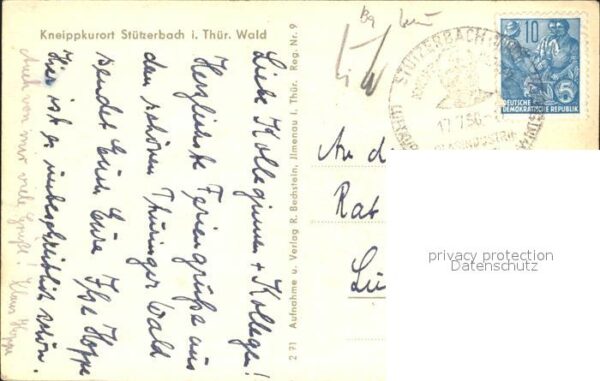 Kneippkurort Stützerbach i. Thür. Wald
Liebe Kolleginnen + Kollegen!
Herzlichste Feriengrüße aus
dem schönen Thüringer Wald
sendet Euch Eure Ilse Hoppe
Hier ist es unbeschreiblich schön.
Auch von mir viele Grüße! Klaus Hoppe
2 71 Aufnahme u. Verlag R. Bechstein, Jlmenau i. Thür. Reg. Nr. 9
STÜTZERBACH
17.7.56
10
DEUTSCHE
DEMOKRATISCHE REPUBLIK
5
An d
Rat
privacy protection
Datenschutz